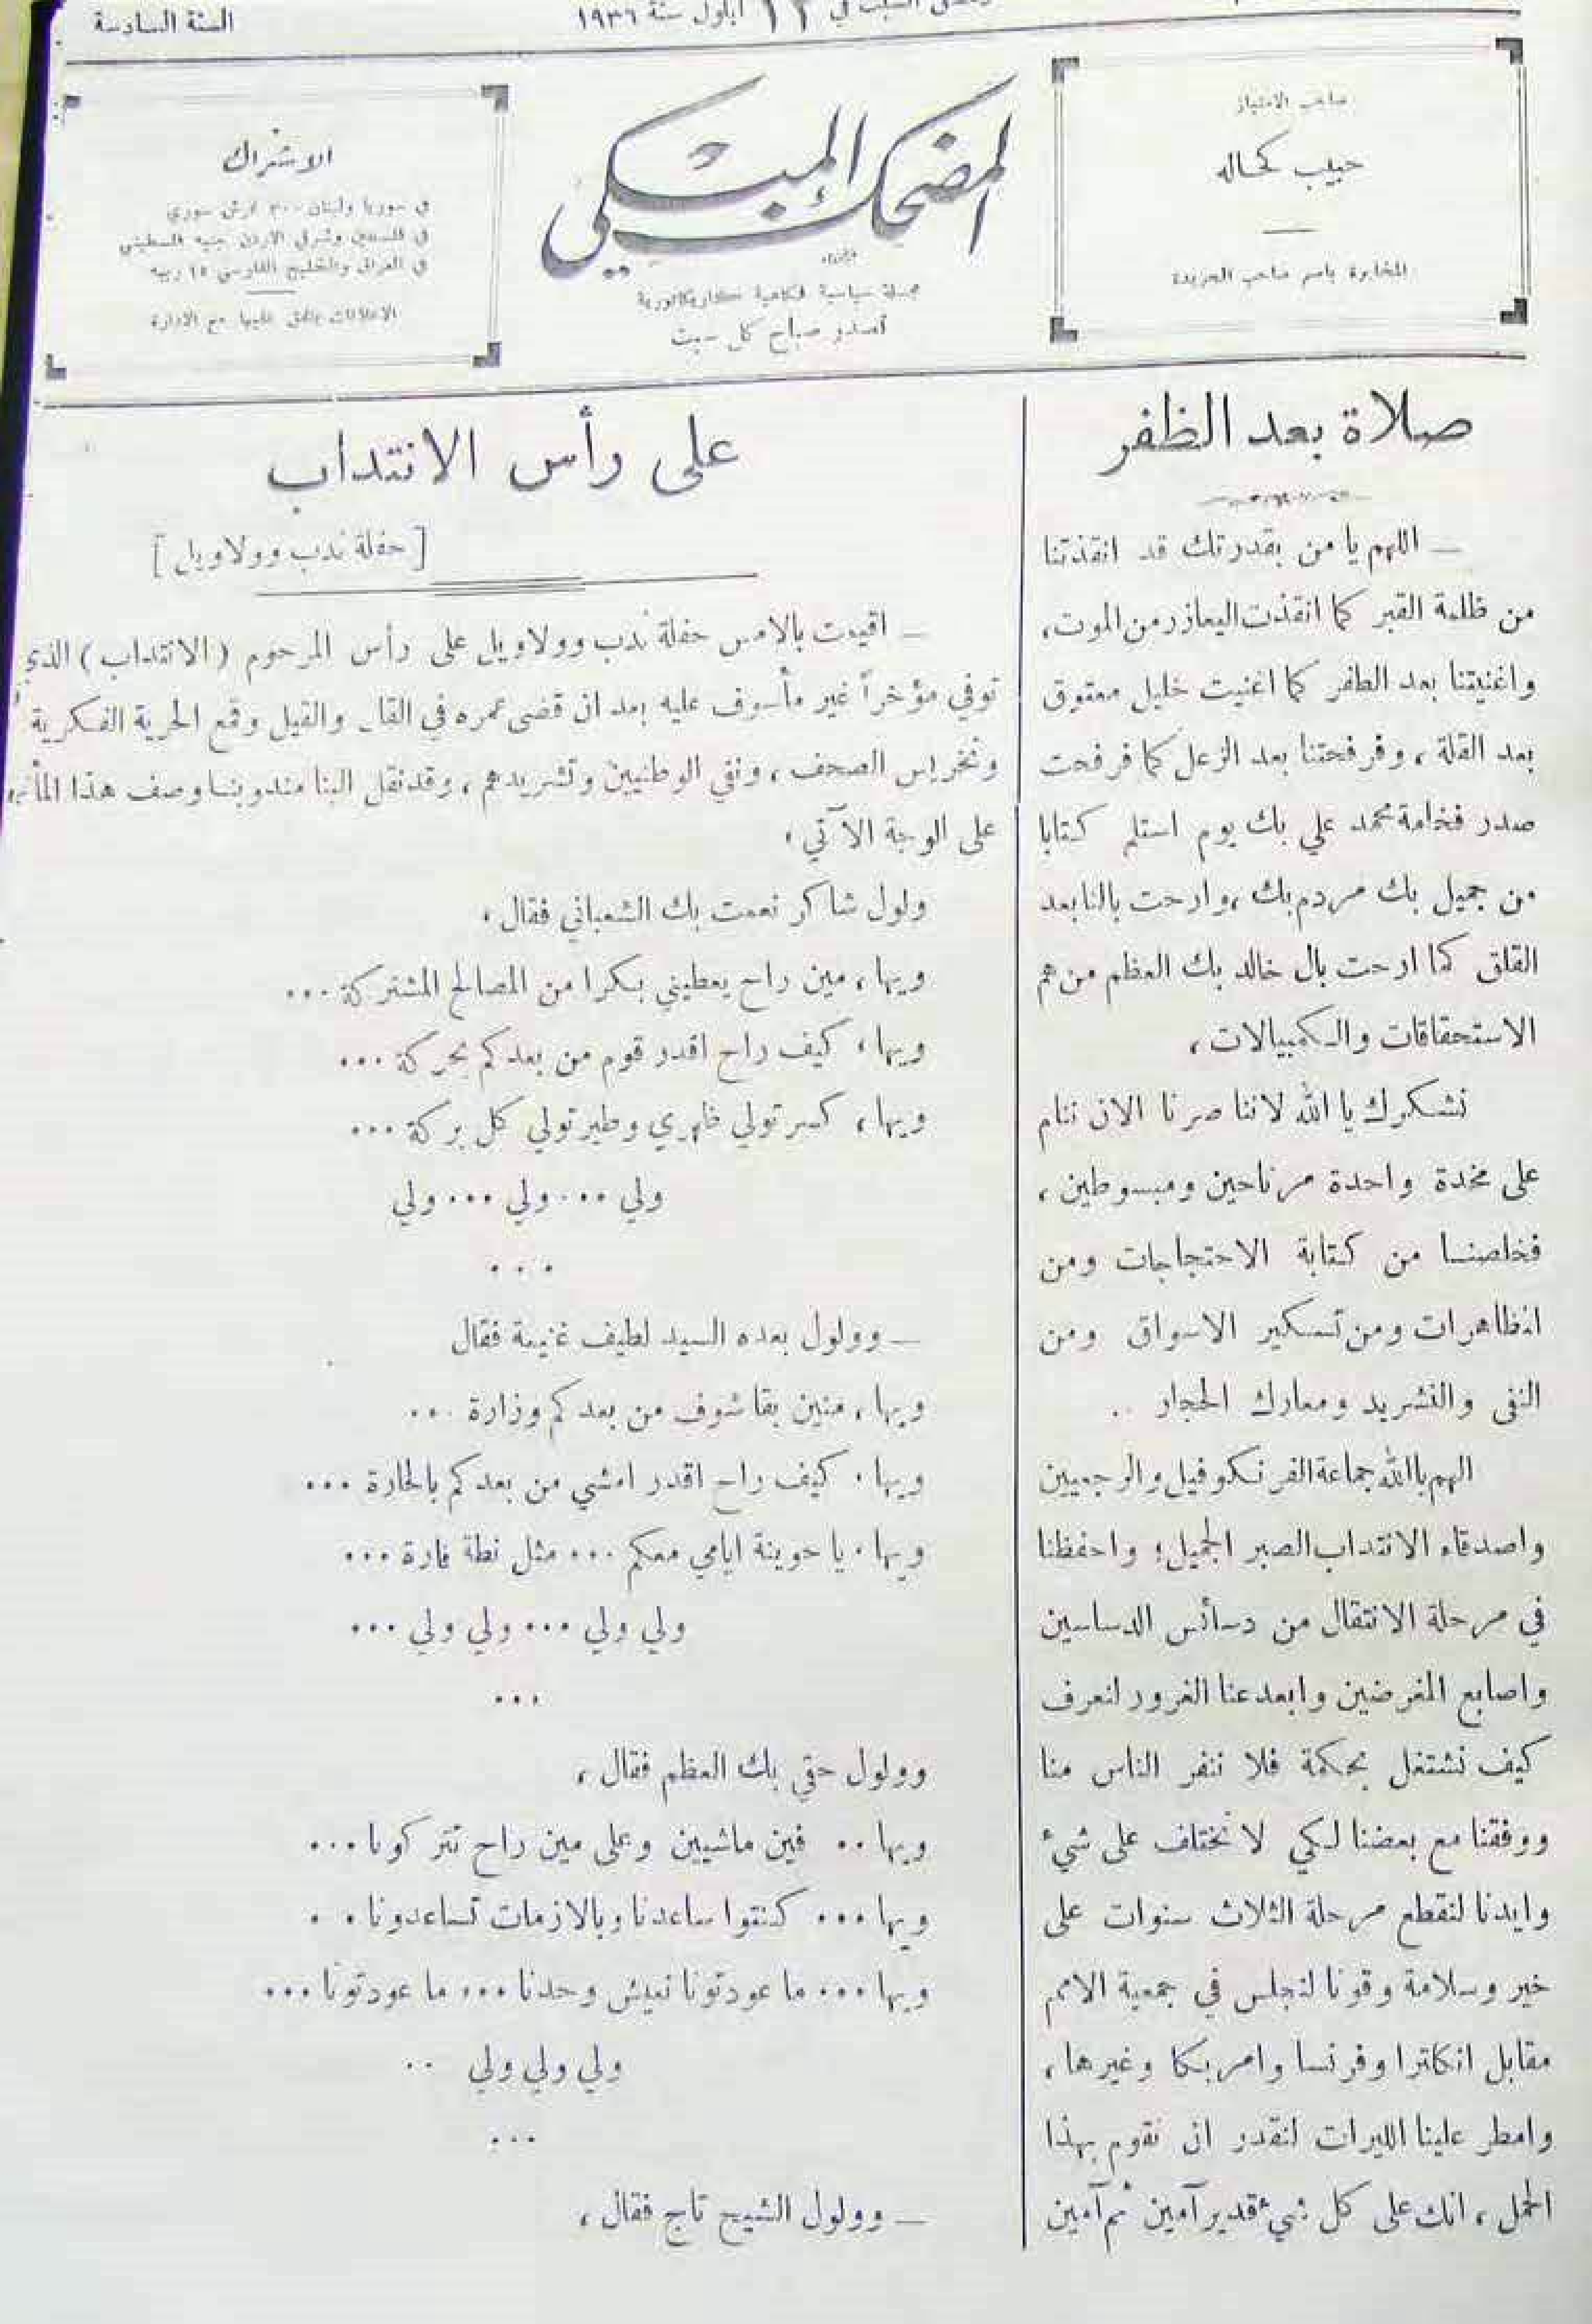 السنة السادسة
ايلول سنة ١٩٣٦
صاحب الامتياز
حبيب كحاله
المخابرة باسم صاحب الجريدة
المضحك المبكي
مجلة سياسية فكاهية كاريكاتورية
تصدر صباح كل سبت
الاشتراك
في سوريا ولبنان ٣٠٠ قرش سوري
في فلسطين وشرق الاردن جنيه فلسطيني
في العراق والخليج الفارسي ١٥ ربيه
الاعلانات يتفق عليها مع الادارة
صلاة بعد الظفر
— اللهم يا من بقدرتك قد انقذتنا
من ظلمة القبر كما انقذت اليعازر من الموت،
واغنيتنا بعد الطفر كما اغنيت خليل معتوق
بعد القلة، وفرفحتنا بعد الزعل كما فرفحت
صدر فخامة محمد علي بك يوم استلم كتابا
من جميل بك مردم بك، وارحت بالنا بعد
القلق كما ارحت بال خالد بك العظم من هم
الاستحقاقات والكمبيالات،
نشكرك يا الله لاننا صرنا الان ننام
على مخدة واحدة مرتاحين ومبسوطين،
فخلصنا من كتابة الاحتجاجات ومن
المظاهرات ومن تسكير الاسواق ومن
النفي والتشريد ومعارك الحجار ..
الهم يا الله جماعة الفرنكوفيل والرجعيين
واصدقاء الانتداب الصبر الجميل؛ واحفظنا
في مرحلة الانتقال من دسائس الدساسين
واصابع المغرضين وابعد عنا الغرور لنعرف
كيف نشتغل بحكمة فلا ننفر الناس منا
ووفقنا مع بعضنا لكي لا نختلف على شيء
وايدنا لنقطع مرحلة الثلاث سنوات على
خير وسلامة وقونا لنجلس في جمعية الامم
مقابل انكلترا وفرنسا وامريكا وغيرها،
وامطر علينا الليرات لنقدر ان نقوم بهذا
الحمل، انك على كل شيء قدير آمين ثم آمين
على رأس الانتداب
[حفلة ندب وولاويل]
— اقيمت بالامس حفلة ندب وولاويل على رأس المرحوم (الانتداب) الذي
توفي مؤخراً غير مأسوف عليه بعد ان قضى عمره في القال والقيل وقمع الحرية الفكرية
وتخريس الصحف، ونفي الوطنيين وتشريدهم، وقد نقل الينا مندوبنا وصف هذا المأتم
على الوجة الآتي،
ولول شاكر نعمت بك الشعباني فقال،
ويها، مين راح يعطيني بكرا من المصالح المشتركة ...
ويها، كيف راح اقدر قوم من بعدكم بحركة ...
ويها، كسرتولي ظهري وطيرتولي كل بركة ...
ولي ... ولي ... ولي
...
— وولول بعده السيد لطيف غنيمة فقال
ويها، منين بقا شوف من بعدكم وزارة ...
ويها، كيف راح اقدر امشي من بعدكم بالحارة ...
ويها، يا حوينة ايامي معكم ... مثل نطة فارة ...
ولي ولي ... ولي ولي ...
...
وولول حقي بك العظم فقال،
ويها .. فين ماشيين وعلى مين راح تتركونا ...
ويها ... كنتوا ساعدنا وبالازمات تساعدونا . .
ويها ... ما عودتونا نعيش وحدنا ... ما عودتونا ...
ولي ولي ولي ..
...
— وولول الشيخ تاج فقال،